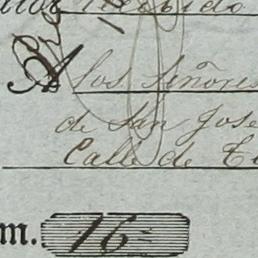 A los Señores
de San Jose
Calle de
m. 16